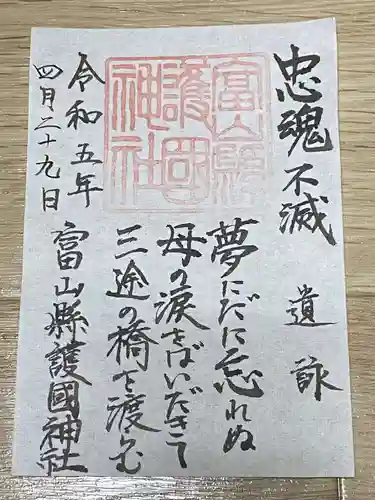 忠魂不滅
遺詠
夢にだに忘れぬ
母の涙をばいだきて
三途の橋を渡らむ
富山縣護國神社
令和五年
四月二十九日
富山縣
護國
神社